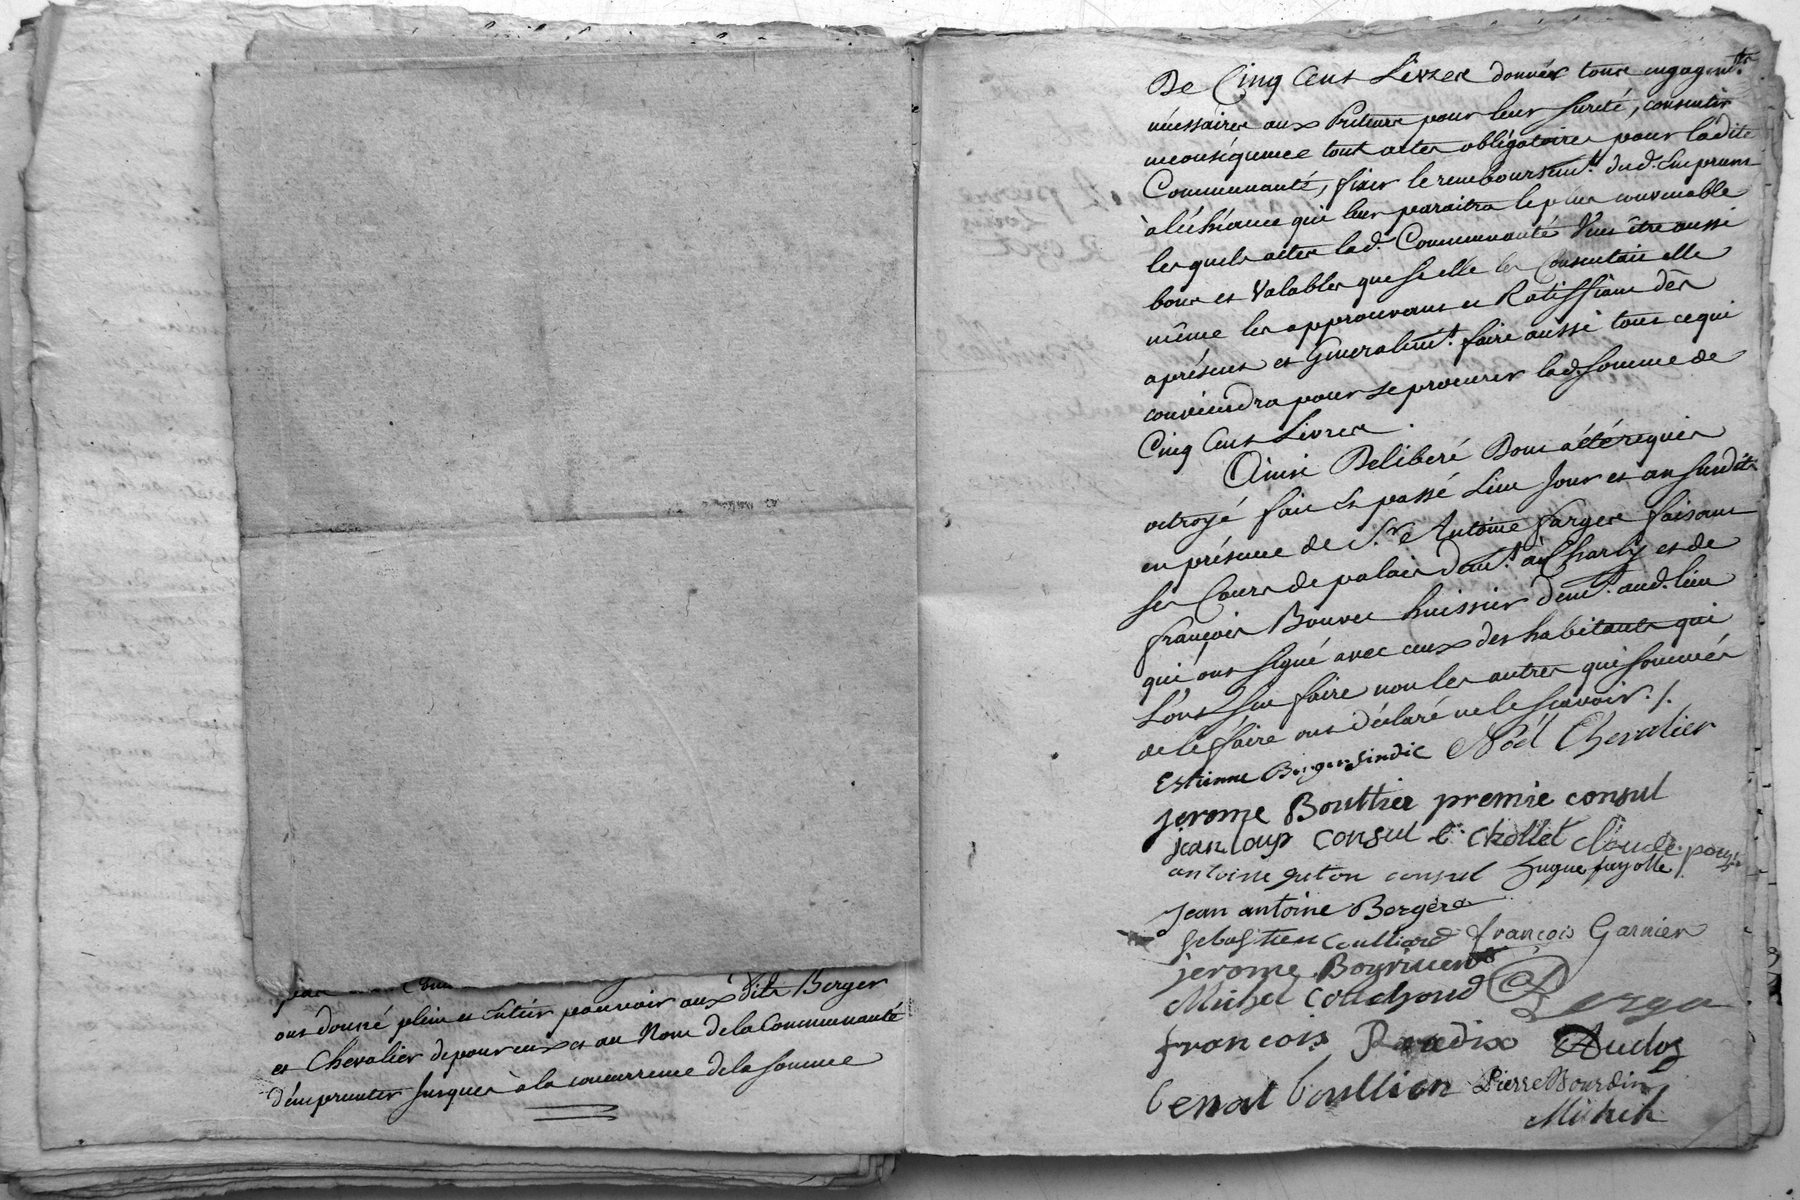 ont donné plein et Entier pouvoir aux dits Berger
et Chevalier de pour eux et au Nom de la Communauté
d'emprunter Jusques à la concurrence de la Somme
De Cinq Cent Livres donner tous engagemts.
nécessaires aux Preteurs pour leur Sureté, consentir
en conséquence tout actes obligatoires pour ladite
Communauté, fixer le remboursemt. dud. Emprunt
à léchéance qui leur paraitra le plus convenable
les quels actes lad. Communauté Veut être aussi
bons et Valables que Si elle les Consentait elle
même les approuvant et Ratiffiant dès
aprésent et Generalemt. faire aussi tout ce qui
conviendra pour se procurer lad. Somme de
Cinq Cent Livres.
Ainsi Deliberé Dont acte requis
octroyé fait et passé Lieu Jour et an Susdits
en présence de Sr. Antoine farges faisant
Ses Cours de palais demt. à Charly et de
françois Bouvet huissier demt. aud. lieu
qui ont Signé avec ceux des habitants qui
L'ont Sçu faire non les autres qui Sommés
de le faire ont déclaré ne le Scavoir ./.
Estienne Berger Sindic Noël Chevalier
jerome Bouttier premie consul
jean loup consul E. Chollet claude
antoine guton consul hugue fayolle
jean antoine Bergera
Sebastien Coulliard françois Garnier
jerome Boyriuent
Michel Couchoud
francois Paradix Audoz
benoit boullion Pierre Bourdin
Michel